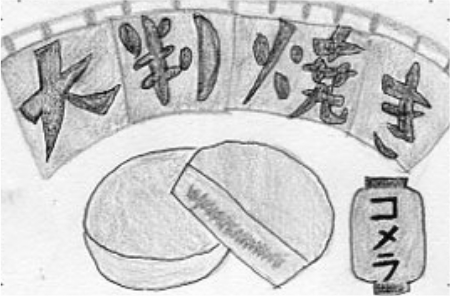 大判焼き
コメラ